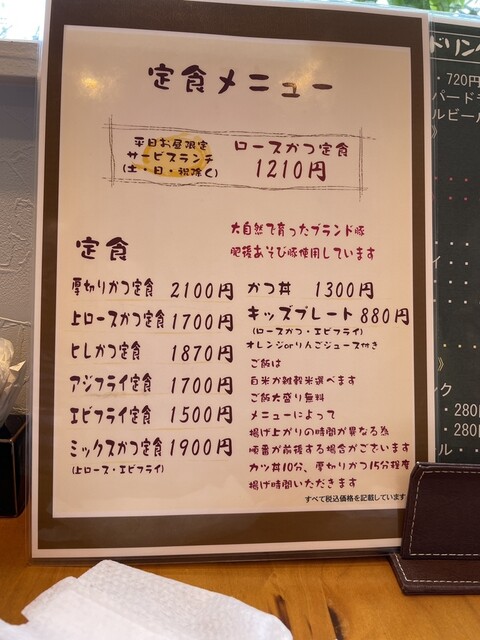 定食メニュー
平日お昼限定
サービスランチ
(土・日・祝除く)
ロースかつ定食
1210円
大自然で育ったブランド豚
肥後あそび豚使用しています
定食
厚切りかつ定食 2100円
上ロースかつ定食 1700円
ヒレかつ定食 1870円
アジフライ定食 1700円
エビフライ定食 1500円
ミックスかつ定食 1900円
(上ロース・エビフライ)
かつ丼 1300円
キッズプレート 880円
(ロースかつ・エビフライ)
オレンジorりんごジュース付き
ご飯は
白米か雑穀米選べます
ご飯大盛り無料
メニューによって
揚げ上がりの時間が異なる為
順番が前後する場合がございます
カツ丼10分、厚切りかつ15分程度
揚げ時間いただきます
すべて税込価格を記載しています
ドリンク
・720円
・280
・280